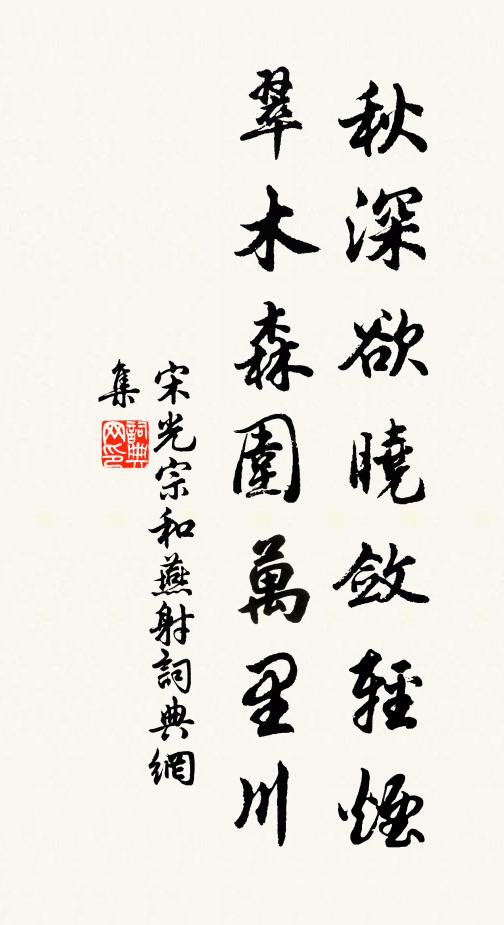 秋深欲曉斂輕煙
翠木森圍萬里川
宋光宗和燕射詞典網
集
詞典網印